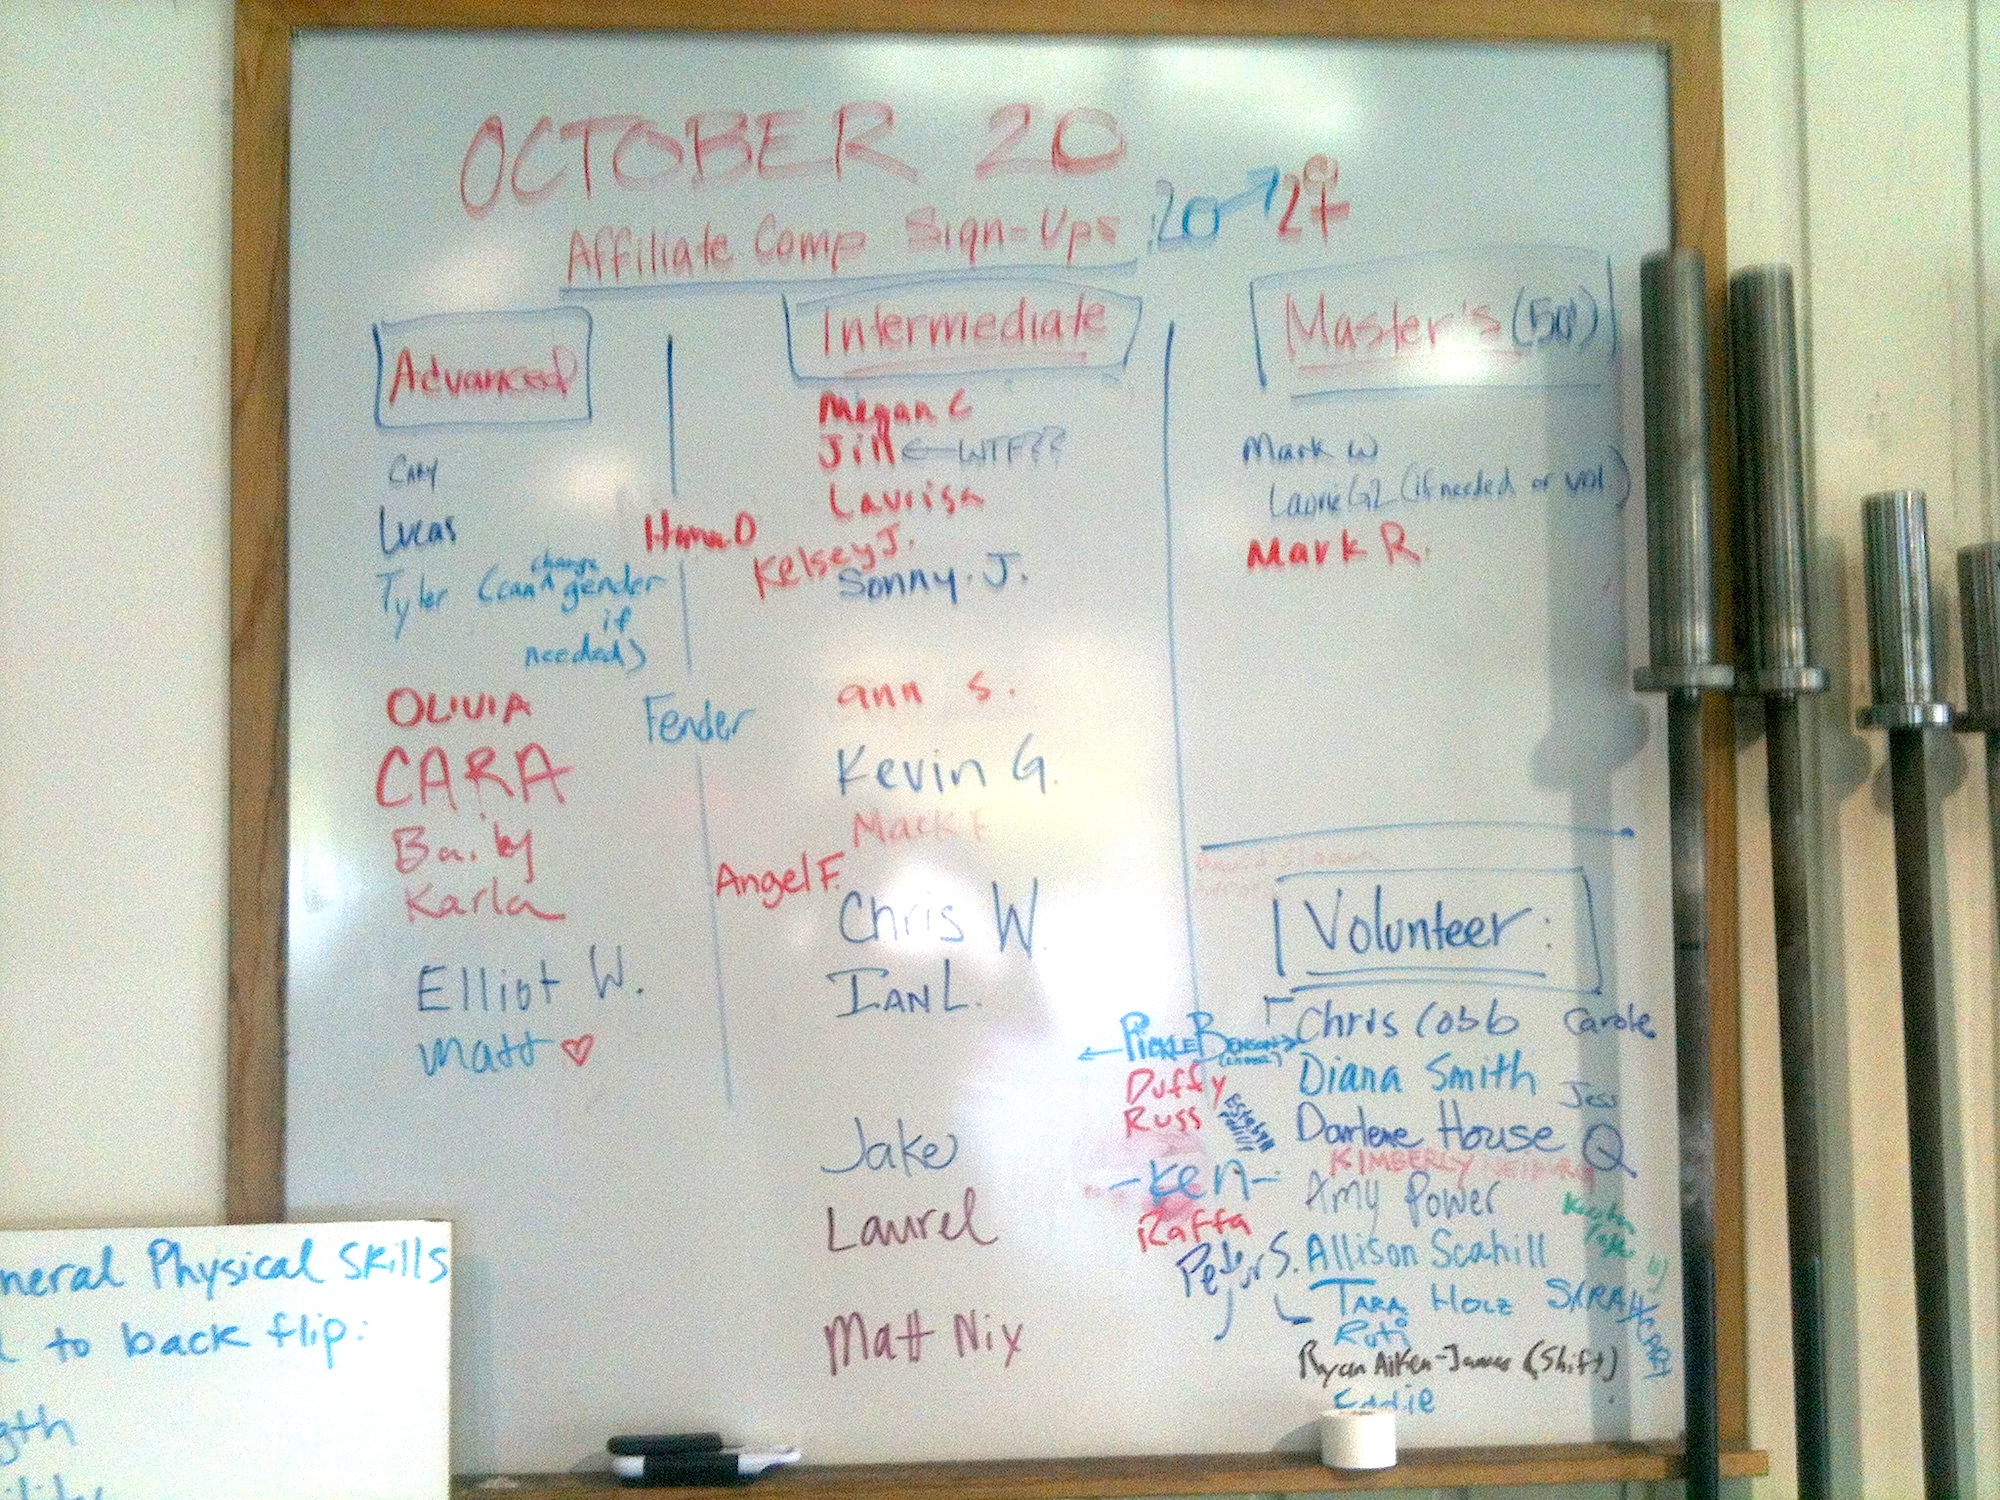 OCTOBER 20
Affiliate Comp Sign-Ups
2♂ 2♀
Advanced
Cary
Lucas
Tyler (can change gender
if
needed)
OLIVIA
CARA
Baily
Karla
Elliot W.
Matt ♡
Hanna D
Fender
Angel F.
Intermediate
Megan C
Jill ← WTF??
Laurisa
Kelsey J.
Sonny. J.
ann s.
Kevin G.
Mark F
Chris W.
IAN L.
Jake
Laurel
Matt Nix
Master's (50+)
Mark W
Laurie G2 (if needed or vol.)
Mark R.
Volunteer:
Chris Cobb
Carole
← PICKLE BENSON →
Diana Smith
Duffy
Jess
Russ
Darlene House
Q
KIMBERLY
-Ken-
Amy Power
Raffa
Peter S.
Allison Scahill
TARA HOLZ
SARAH
Ruti
Ryan Aiken-James (Shift)
Eddie
neral Physical Skills
to back flip:
gth
ility